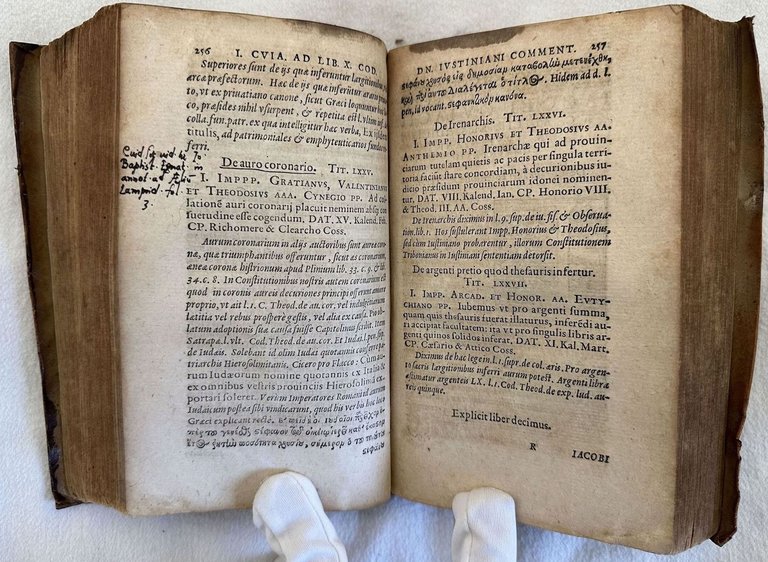 256 I. CVIA. AD LIB. X. COD.
Superiores sunt de ijs quæ inferuntur largitionum
arcæ præfectorum. Hac de ijs quæ inferuntur ærario
to, vt ex priuatiano canone, sicut Græci loquuntur hoc
co, præsides nihil vsurpent, & repetita est l. vltim
colla. fun. patr. ex qua intelligitur hæc verba, Ex
titulis, ad patrimoniales & emphyteuticarios fund
ferri.
De auro coronario. TIT. LXXV.
I. IMPPP. GRATIANVS, VALENTINIANVS
ET THEODOSIVS AAA. CYNEGIO PP. Ad col
lationē auri coronarij placuit neminem absq; con
suetudine esse cogendum. DAT. XV. Kalend. Feb.
CP. Richomere & Clearcho Coss.
Aurum coronarium in alijs auctoribus sunt aureæ coro
næ, quæ triumphantibus offeruntur, sicut æs coronarium,
æneæ coronæ histrionum apud Plinium lib. 33. c. 9. & lib.
34. c. 8. In Constitutionibus nostris autem coronarium est
quod in coronis aureis decuriones principi offerunt animo
proprio, vt ait l. 1. C. Theod. de au. cor. vel indulgentiarum
lætitia vel rebus prosperè gestis, vel alia ex causa.
rum adoptionis suæ causa fuisse Capitolinus scribit. Item
Satrapæ l. vlt. Cod. Theod. de au. cor. Et Iudæi l. pen. sup.
de Iudæis. Solebant id olim Iudæi quotannis conferre
triarchis Hierosolimitanis, Cicero pro Flacco: Cùm au-
rum Iudæorum nomine quotannis ex Italia &
ex omnibus vestris prouincijs Hierosolimam ex
portari soleret. Verùm Imperatores Romani id aurum
Iudaicum postea sibi vindicarunt, quod his verbis hoc loco
Græci explicant rectè.
Baptist. Egnat. in
annot. ad Æliū
Lamprid. fol.
3.
DN. IVSTINIANI COMMENT. 257
Hîdem ad d. l.
pen. id vocant.
De Irenarchis. TIT. LXXVI.
I. IMPP. HONORIVS ET THEODOSIVS AA.
ANTHEMIO PP. Irenarchæ qui ad prouin-
ciarum tutelam quietis ac pacis per singula terri
toria faciunt stare concordiam, à decurionibus iu-
dicio præsidum prouinciarum idonei nominen-
tur. DAT. VIII. Kalend. Ian. CP. Honorio VIII.
& Theod. III. AA. Coss.
De irenarchis diximus in l. 9. sup. de iu. fis. & Obserua-
tion. lib. 1. Hos sustulerant Impp. Honorius & Theodosius,
sed cùm Iustiniano probarentur, illorum Constitutionem
Tribonianus in Iustiniani sententiam detorsit.
De argenti pretio quod thesauris infertur.
TIT. LXXVII.
I. IMPP. ARCAD. ET HONOR. AA. EVTY-
CHIANO PP. Iubemus vt pro argenti summa,
quam quis thesauris fuerat illaturus, inferēdi au-
ri accipiat facultatem: ita vt pro singulis libris ar-
genti quinos solidos inferat. DAT. XI. Kal. Mart.
CP. Cæsario & Attico Coss.
Diximus de hac lege in l. 1. supr. de col. æris. Pro argen-
to sacris Largitionibus inferri aurum potest. Argenti libræ
æstimatur argenteis LX. l. 1. Cod. Theod. de exp. lud. au-
reis quinque.
Explicit liber decimus.
R IACOBI